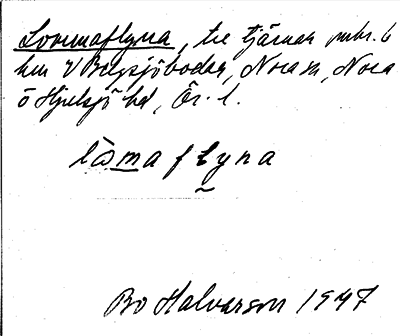 Lommaflyna, tre tjärnar mkr. 6
km V Bergsjöbodar, Nora sn, Nora
o Hjulsjö hd, Ör. l.
lòmaflyna
Bo Halvarson 1947